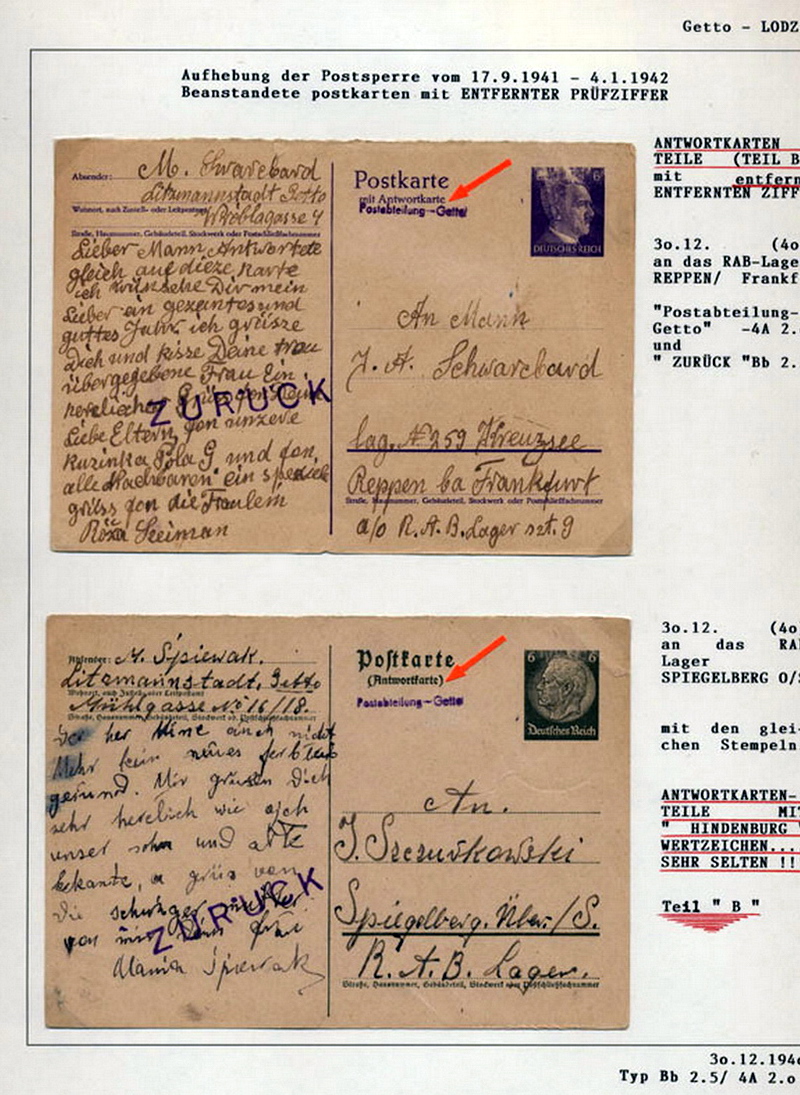 Getto - LODZ
Aufhebung der Postsperre vom 17.9.1941 - 4.1.1942
Beanstandete postkarten mit ENTFERNTER PRÜFZIFFER
ANTWORTKARTEN
TEILE (TEIL B
mit entfern
ENTFERNTEN ZIFF
3o.12. (4o
an das RAB-Lage
REPPEN/ Frankf
"Postabteilung-
Getto" -4A 2.
und
" ZURÜCK "Bb 2.
Absender: M. Szwarcbard
Litzmannstadt Getto
Wohnort, auch Zustell- oder Leitpostamt
Straße, Hausnummer, Gebäudeteil, Stockwerk oder Postschließfachnummer
Lieber Mann Antwortete
gleich auf dieze Karte
ich wünsche Dir mein
Lieber ein gezantes und
guttes Jahr. ich grüsze
Dich und kisse Deine frau
übergegebene Frau Ein
herzlicher
Liebe Eltern fon unzere
Kuzinka Pola G und fon
alle ein
grüss fon die Fraulem
Róża Szeiman
ZURÜCK
Postkarte
mit Antwortkarte
Postabteilung-Getto
6
DEUTSCHES REICH
An Mann
J. A. Schwarcbard
lag. № 259 Kreuzsee
Reppen ba Frankfurt
Straße, Hausnummer, Gebäudeteil, Stockwerk oder Postschließfachnummer
a/o R.A.B. Lager szt. 9
Absender: M. Śpiewak.
Litzmannstadt, Getto
Wohnort, auch Zustell- oder Leitpostamt
Mühlgasse № 16/18.
Straße, Hausnummer, Gebäudeteil, Stockwerk od. Postschließfachnummer
auch nicht
Mehr kein neues
gesund. Mir grüsen Dich
sehr herclich wie auch
unser sohn und alle
bekante, a grüs von
Die schwiger
von
Śpiewak
ZURÜCK
Postkarte
(Antwortkarte)
Postabteilung-Getto
6 6
Deutsches Reich
An.
J. Szczuśkowski
Spiegelberg. Über/S.
R.A.B. Lager.
Straße, Hausnummer, Gebäudeteil, Stockwerk oder Postschließfachnummer
3o.12. (4o
an das RA
Lager
SPIEGELBERG O/S
mit den glei-
chen Stempeln
ANTWORTKARTEN-
TEILE MIT
" HINDENBURG
WERTZEICHEN...
SEHR SELTEN !!
Teil " B "
3o.12.194o
Typ Bb 2.5/ 4A 2.o